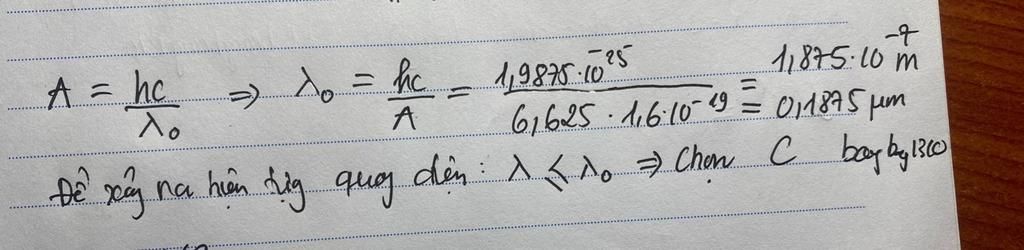 A = hc/λ₀ ⇒ λ₀ = hc/A = 1,9875.10⁻²⁵/6,625 . 1,6.10⁻¹⁹ = 1,875.10⁻⁷ m
= 0,1875 μm
Để xảy ra hiện tượng quang điện: λ ≤ λ₀ ⇒ Chọn C